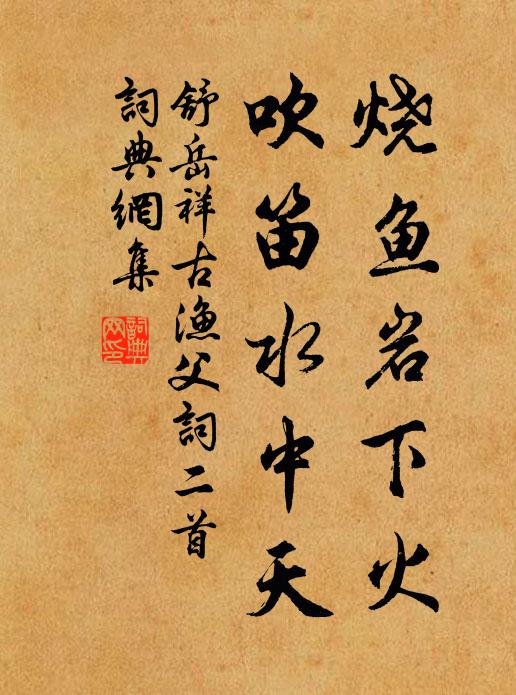 烧鱼岩下火
吹笛水中天
舒岳祥古渔父詞二首
詞典網集
詞典网印